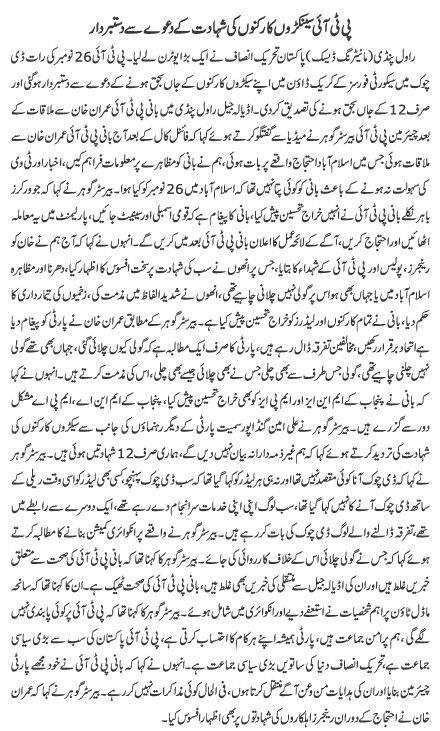 پی ٹی آئی سینکڑوں کارکنوں کی شہادت کے دعوے سے دستبردار
راول پنڈی (مانیٹرنگ ڈیسک) پاکستان تحریک انصاف نے ایک بڑا یوٹرن لے لیا۔ پی ٹی آئی 26 نومبر کی رات ڈی
چوک میں سیکورٹی فورسز کے کریک ڈاؤن میں اپنے سیکڑوں کارکنوں کے جاں بحق ہونے کے دعوے سے دستبردار ہوگئی اور
صرف 12 کے جاں بحق ہونے کی تصدیق کردی۔ اڈیالہ جیل راول پنڈی میں بانی پی ٹی آئی عمران خان سے ملاقات کے
بعد چیئرمین پی ٹی آئی بیرسٹر گوہر نے میڈیا سے گفتگو کرتے ہوئے کہا کہ فائنل کال کے بعد آج بانی پی ٹی آئی عمران خان سے
ملاقات ہوئی جس میں اسلام آباد احتجاج واقعے پر بات ہوئی، ہم نے بانی کو مظاہرے پر معلومات فراہم کیں، اخبار اور ٹی وی
کی سہولت نہ ہونے کے باعث بانی کو کوئی پتا نہیں تھا کہ اسلام آباد میں 26 نومبر کو کیا ہوا۔ بیرسٹر گوہر نے کہا کہ جو ورکرز
باہر نکلے بانی پی ٹی آئی نے انہیں خراج تحسین پیش کیا، بانی کا پیغام ہے کہ قومی اسمبلی اور سینیٹ جائیں، پارلیمنٹ میں یہ معاملہ
اٹھائیں اور احتجاج کریں، آگے کے لائحہ عمل کا اعلان بانی پی ٹی آئی بعد میں کریں گے۔ انہوں نے کہا کہ آج ہم نے خان کو
رینجرز، پولیس اور پی ٹی آئی کے شہداء کا بتایا، جس پر انھوں نے سب کی شہادت پر سخت افسوس کا اظہار کیا، دھرنا اور مظاہرہ
اسلام آباد میں یا جہاں بھی ہو اس پر گولی نہیں چلانی چاہیے تھی، انھوں نے شدید الفاظ میں مذمت کی، زخمیوں کی تیمارداری کا
حکم دیا، بانی نے تمام کارکنوں اور لیڈرز کو خراج تحسین پیش کیا ہے۔ بیرسٹر گوہر کے مطابق عمران خان نے پارٹی کو پیغام دیا
ہے اتحاد برقرار رکھیں، مخالفین تفرقہ ڈال رہے ہیں، پارٹی کا صرف ایک مطالبہ ہے کہ گولی کیوں چلائی گئی، جہاں بھی تھے گولی
نہیں چلنی چاہیے تھی، گولی جس طرف سے بھی چلی جس نے بھی چلائی جیسے بھی چلی، اس کی مذمت کرتے ہیں۔ انہوں نے کہا
کہ بانی نے پنجاب کے ایم این ایز اور ایم پی ایز کو بھی خراج تحسین پیش کیا، پنجاب کے ایم این اے، ایم پی اے مشکل
دور سے گزرے ہیں۔ بیرسٹر گوہر نے علی امین گنڈاپور سمیت پارٹی کے دیگر رہنماؤں کی جانب سے سیکڑوں کارکنوں کی
شہادت کی تردید کرتے ہوئے کہا کہ ہم غیر ذمہ دارانہ بیان نہیں دیں گے، ہماری صرف 12 شہادتیں ہوئی ہیں۔ بیرسٹر گوہر
نے کہا کہ ڈی چوک آنا کوئی مقصد نہیں تھا اور نہ ہی ہر لیڈر کو کہا گیا تھا کہ سب ڈی چوک پہنچو، کسی بھی لیڈر کو اسی وقت ریلی کے
ساتھ ڈی چوک آنے کا نہیں کہا گیا تھا، سب لوگ اپنی اپنی خدمات سرانجام دے رہے تھے، ایک دوسرے سے رابطے میں
تھے، تفرقہ ڈالنے والے لوگ ڈی چوک کی بات کر رہے ہیں۔ بیرسٹر گوہر نے واقعے پر انکوائری کمیشن بنانے کا مطالبہ کرتے
ہوئے کہا کہ جس نے گولی چلائی اس کے خلاف کارروائی کی جائے۔ بیرسٹر گوہر کا کہنا تھا کہ بانی پی ٹی آئی کی صحت سے متعلق
خبریں غلط ہیں اور ان کی اڈیالہ جیل سے منتقلی کی خبریں بھی غلط ہیں، بانی پی ٹی آئی کی صحت ٹھیک ہے۔ ان کا کہنا تھا کہ سانحہ
ماڈل ٹاؤن پر اہم شخصیات نے استعفے دیے اور انکوائری میں شامل ہوئے۔ بیرسٹر گوہر کا کہنا تھا کہ پی ٹی آئی پر کوئی پابندی نہیں
لگے گی، ہم پرامن جماعت ہیں، پارٹی ہمیشہ اپنے ہر کام کا احتساب کرتی ہے، پی ٹی آئی پاکستان کی سب سے بڑی سیاسی
جماعت ہے، تحریک انصاف دنیا کی ساتویں بڑی سیاسی جماعت ہے۔ انہوں نے کہا کہ بانی پی ٹی آئی نے خود مجھے پارٹی
چیئرمین بنایا اور ان کی ہدایات من و عن آگے منتقل کرتا ہوں، فی الحال کوئی مذاکرات نہیں کر رہے۔ بیرسٹر گوہر نے کہا کہ عمران
خان نے احتجاج کے دوران رینجرز اہلکاروں کی شہادتوں پر بھی اظہار افسوس کیا۔